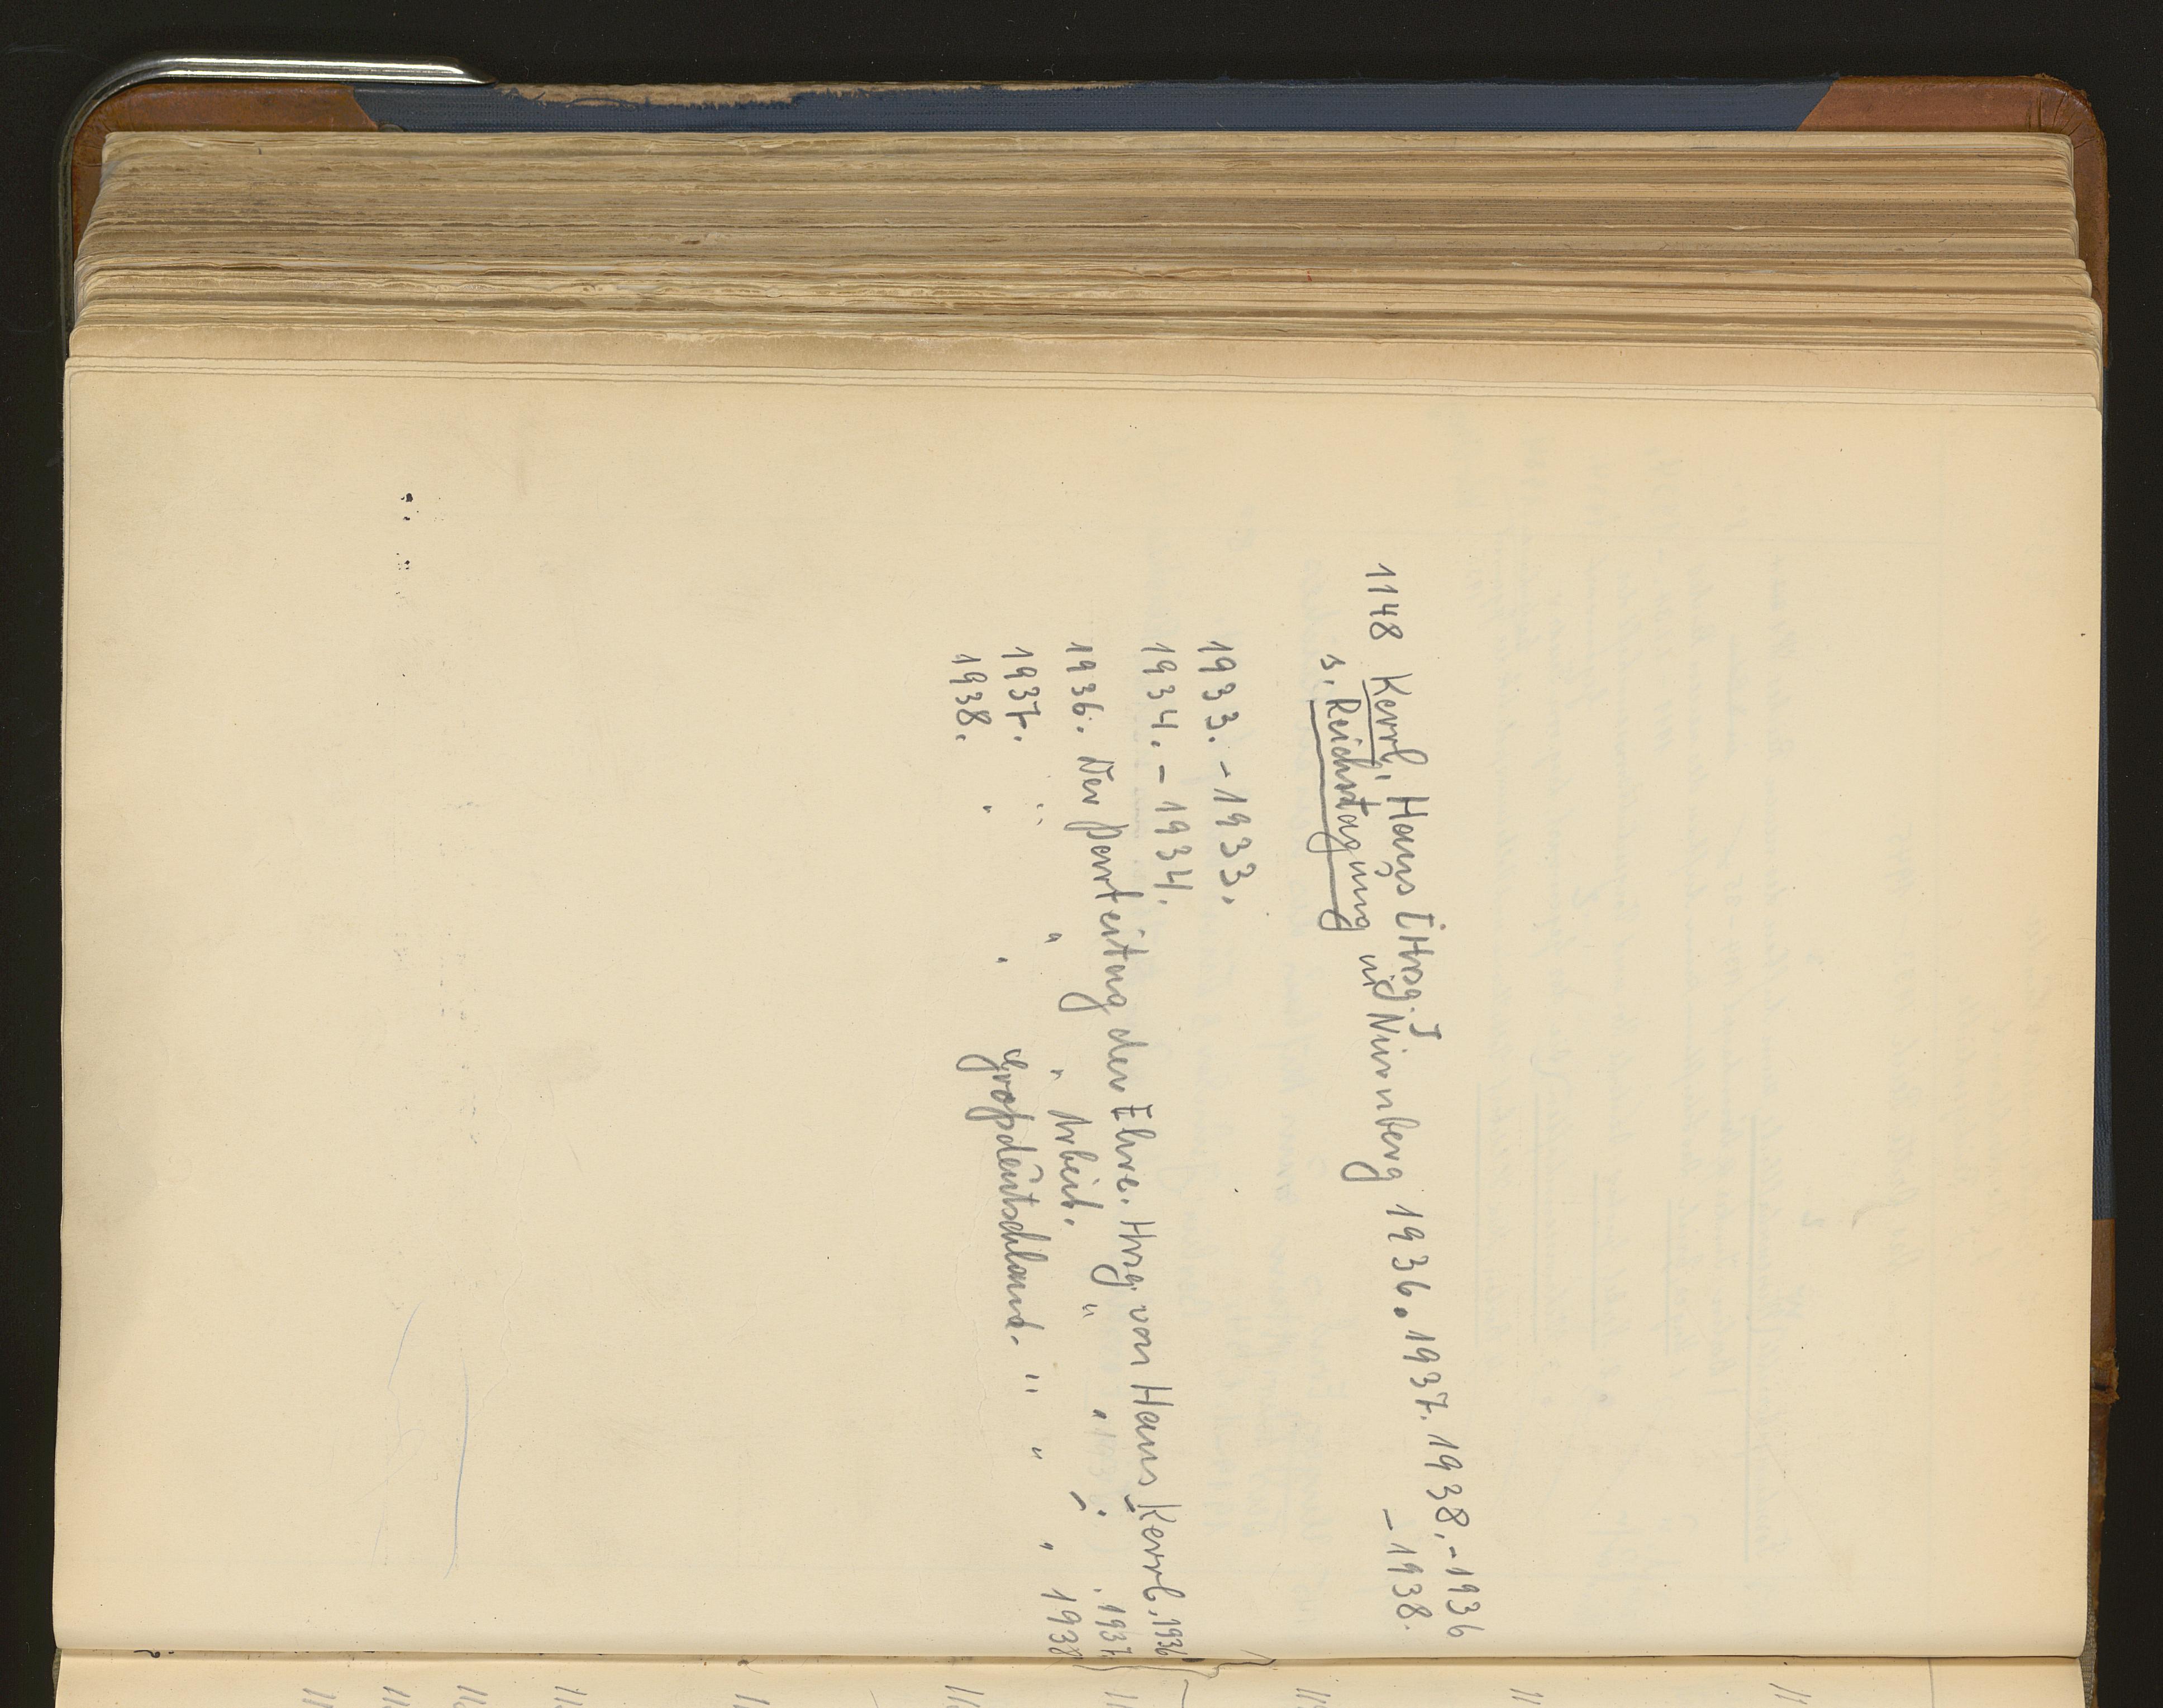 1148 Kerrl, Hans [Hrsg.]
s. Reichstagung in Nürnberg 1936. 1937. 1938. - 1936
- 1938.
1933. - 1933.
1934. - 1934.
1936. Der Parteitag der Ehre. Hrsg. von Hans Kerrl. 1936
1937. " " " Arbeit. " " " " . 1937.
1938. " " Großdeutschland. " " " 1938